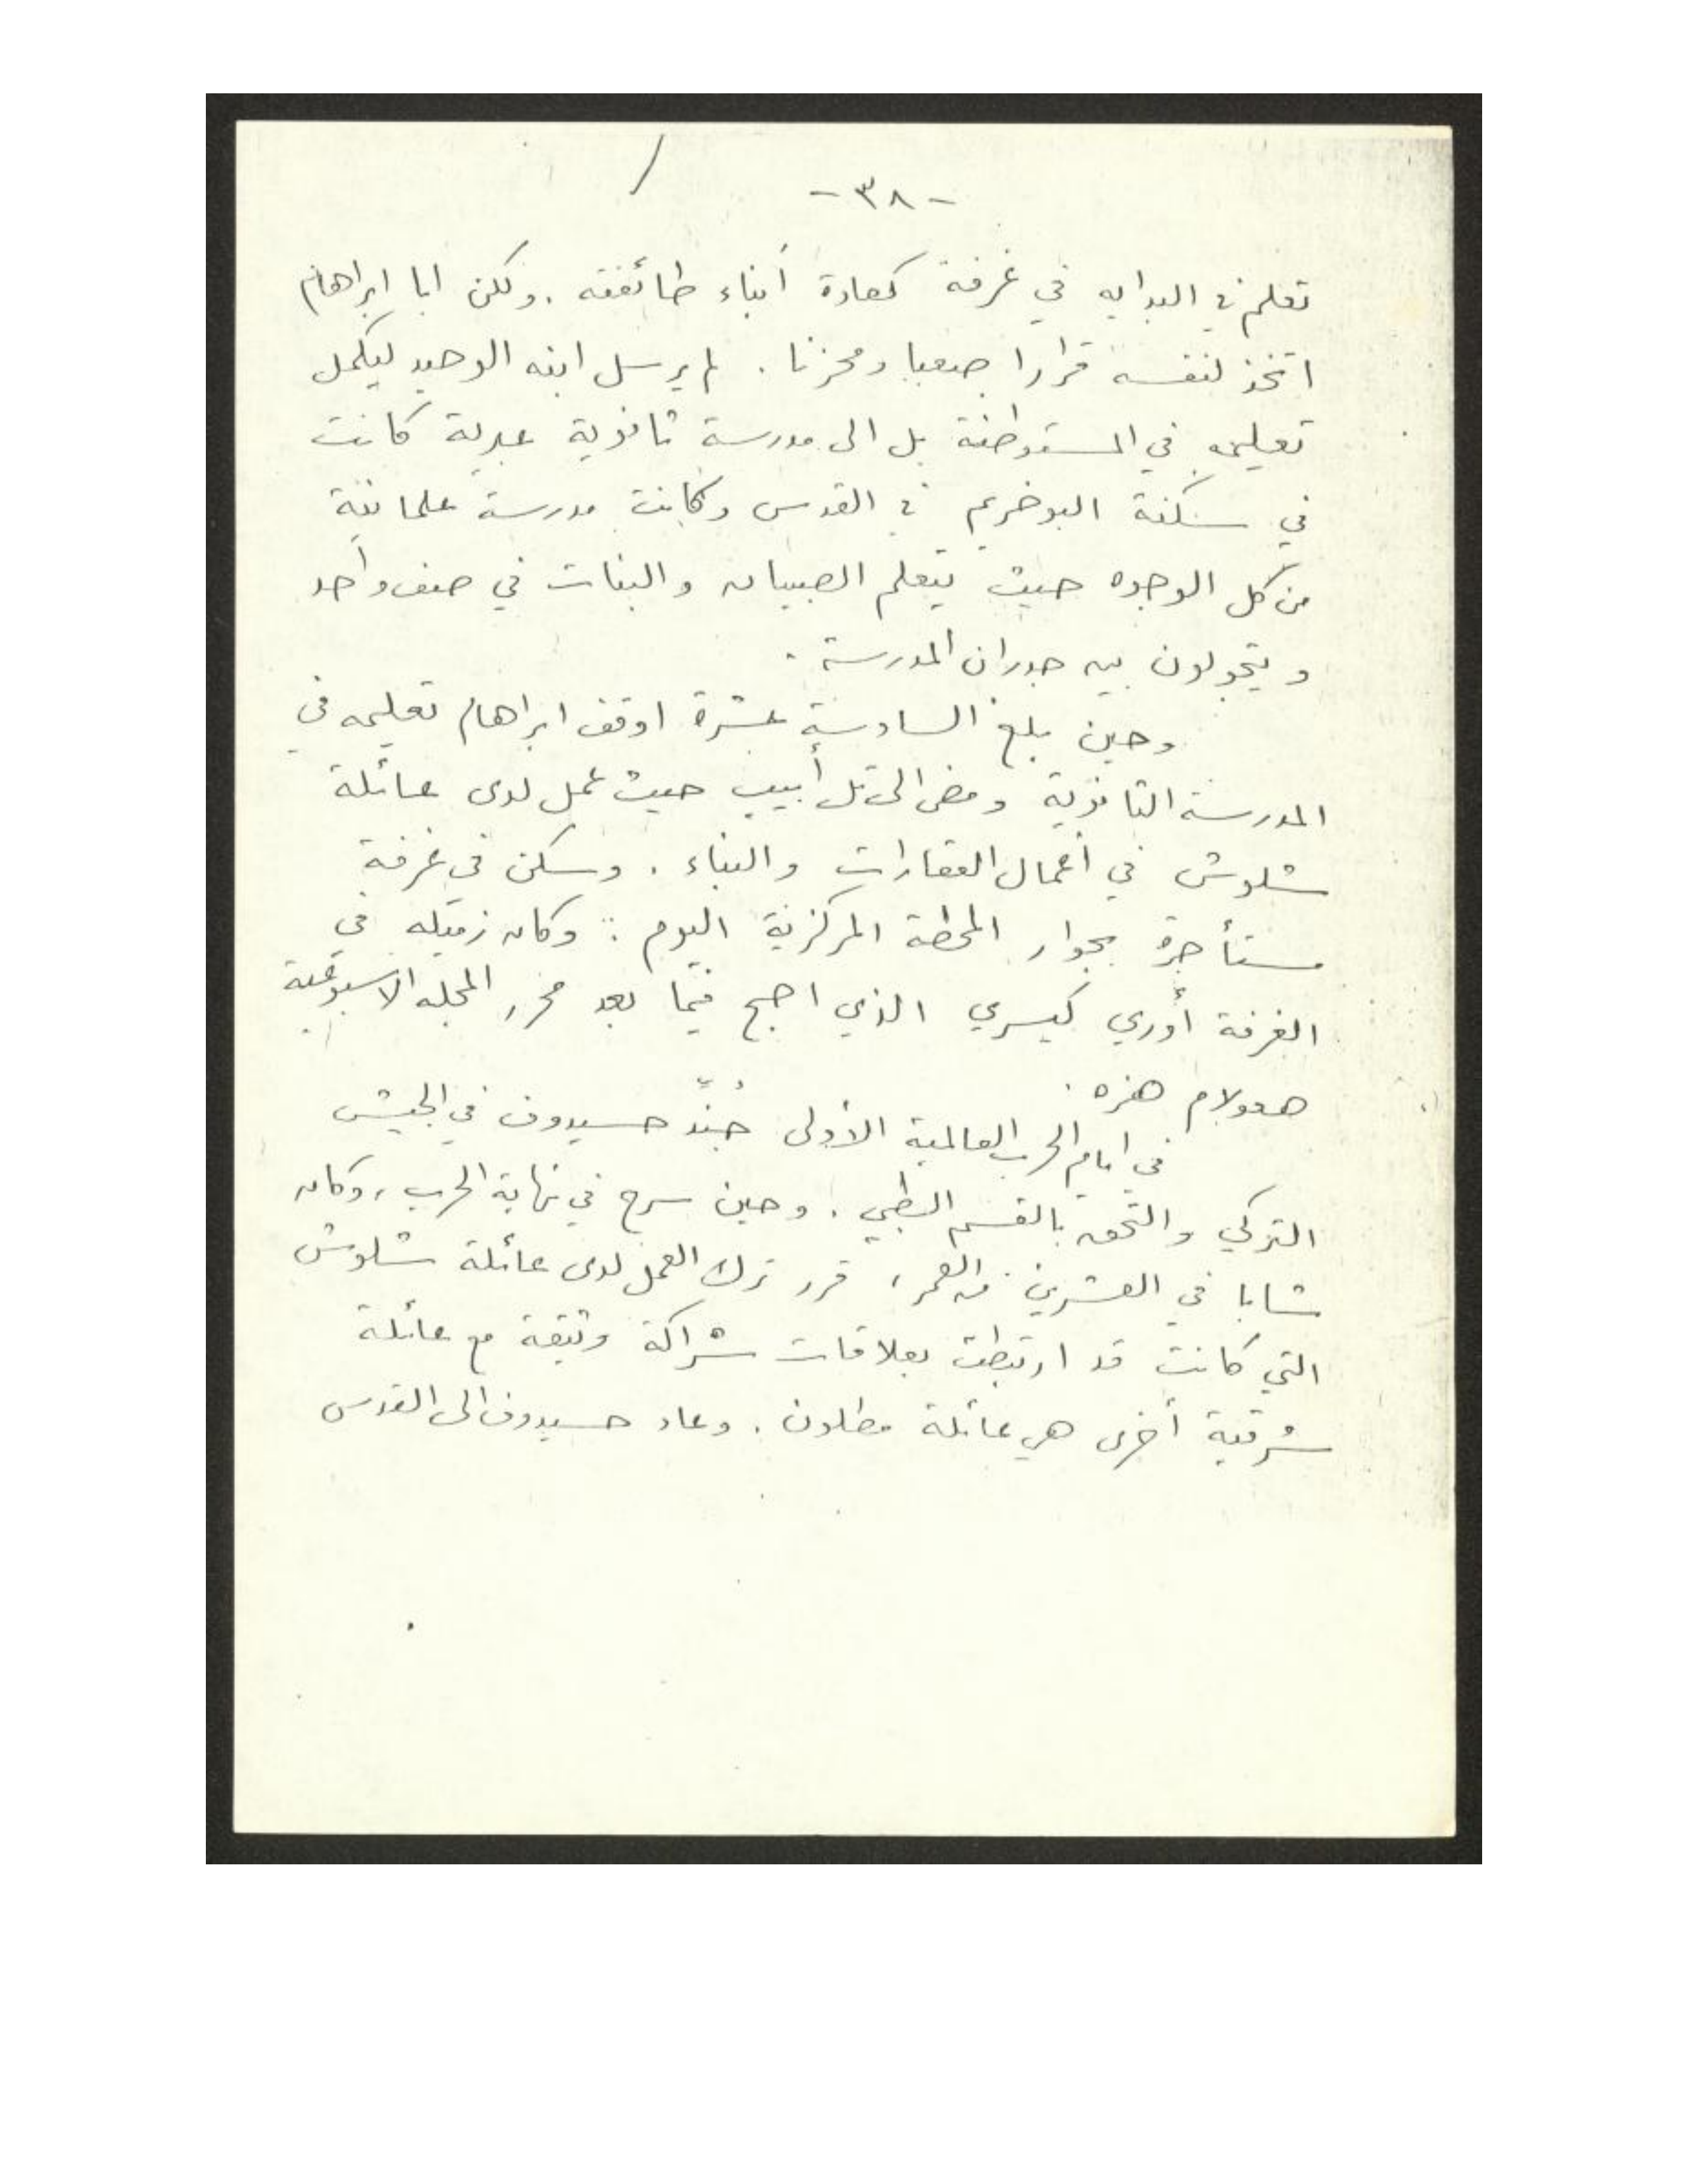 -٣٨-
تعلم في البدايه في غرفة كعادة أبناء طائفته . ولكن ابا ابراهام
اتخذ لنفسه قرارا صعبا ومحزنا . لم يرسل ابنه الوحيد ليكمل
تعليمه في المستوطنة بل الى مدرسة ثانوية عبرية كانت
في سكنة البوخريم في القدس وكانت مدرسة علمانية
من كل الوجوه حيث يتعلم الصبيان والبنات في صف واحد
ويتجولون بين جدران المدرسة .
وحين بلغ السادسة عشرة اوقف ابراهام تعليمه في
المدرسة الثانوية ومضى الى تل أبيب حيث عمل لدى عائلة
شلوش في أعمال العقارات والبناء . وسكن في غرفة
مستأجرة بجوار المحطة المركزية اليوم : وكان زميله في
الغرفة أوري كيسري الذي اصبح فيما بعد محرر المجله الاسبوعية
هعولام هزه .
في ايام الحرب العالمية الأولى جُنِّد حسيدوف في الجيش
التركي والتحق بالقسم الطبي . وحين سرح في نهاية الحرب ، وكان
شابا في العشرين من العمر ، قرر ترك العمل لدى عائلة شلوش
التي كانت قد ارتبطت بعلاقات شراكة وثيقة مع عائلة
شرقية أخرى هي عائلة مطلون . وعاد حسيدوف الى القدس